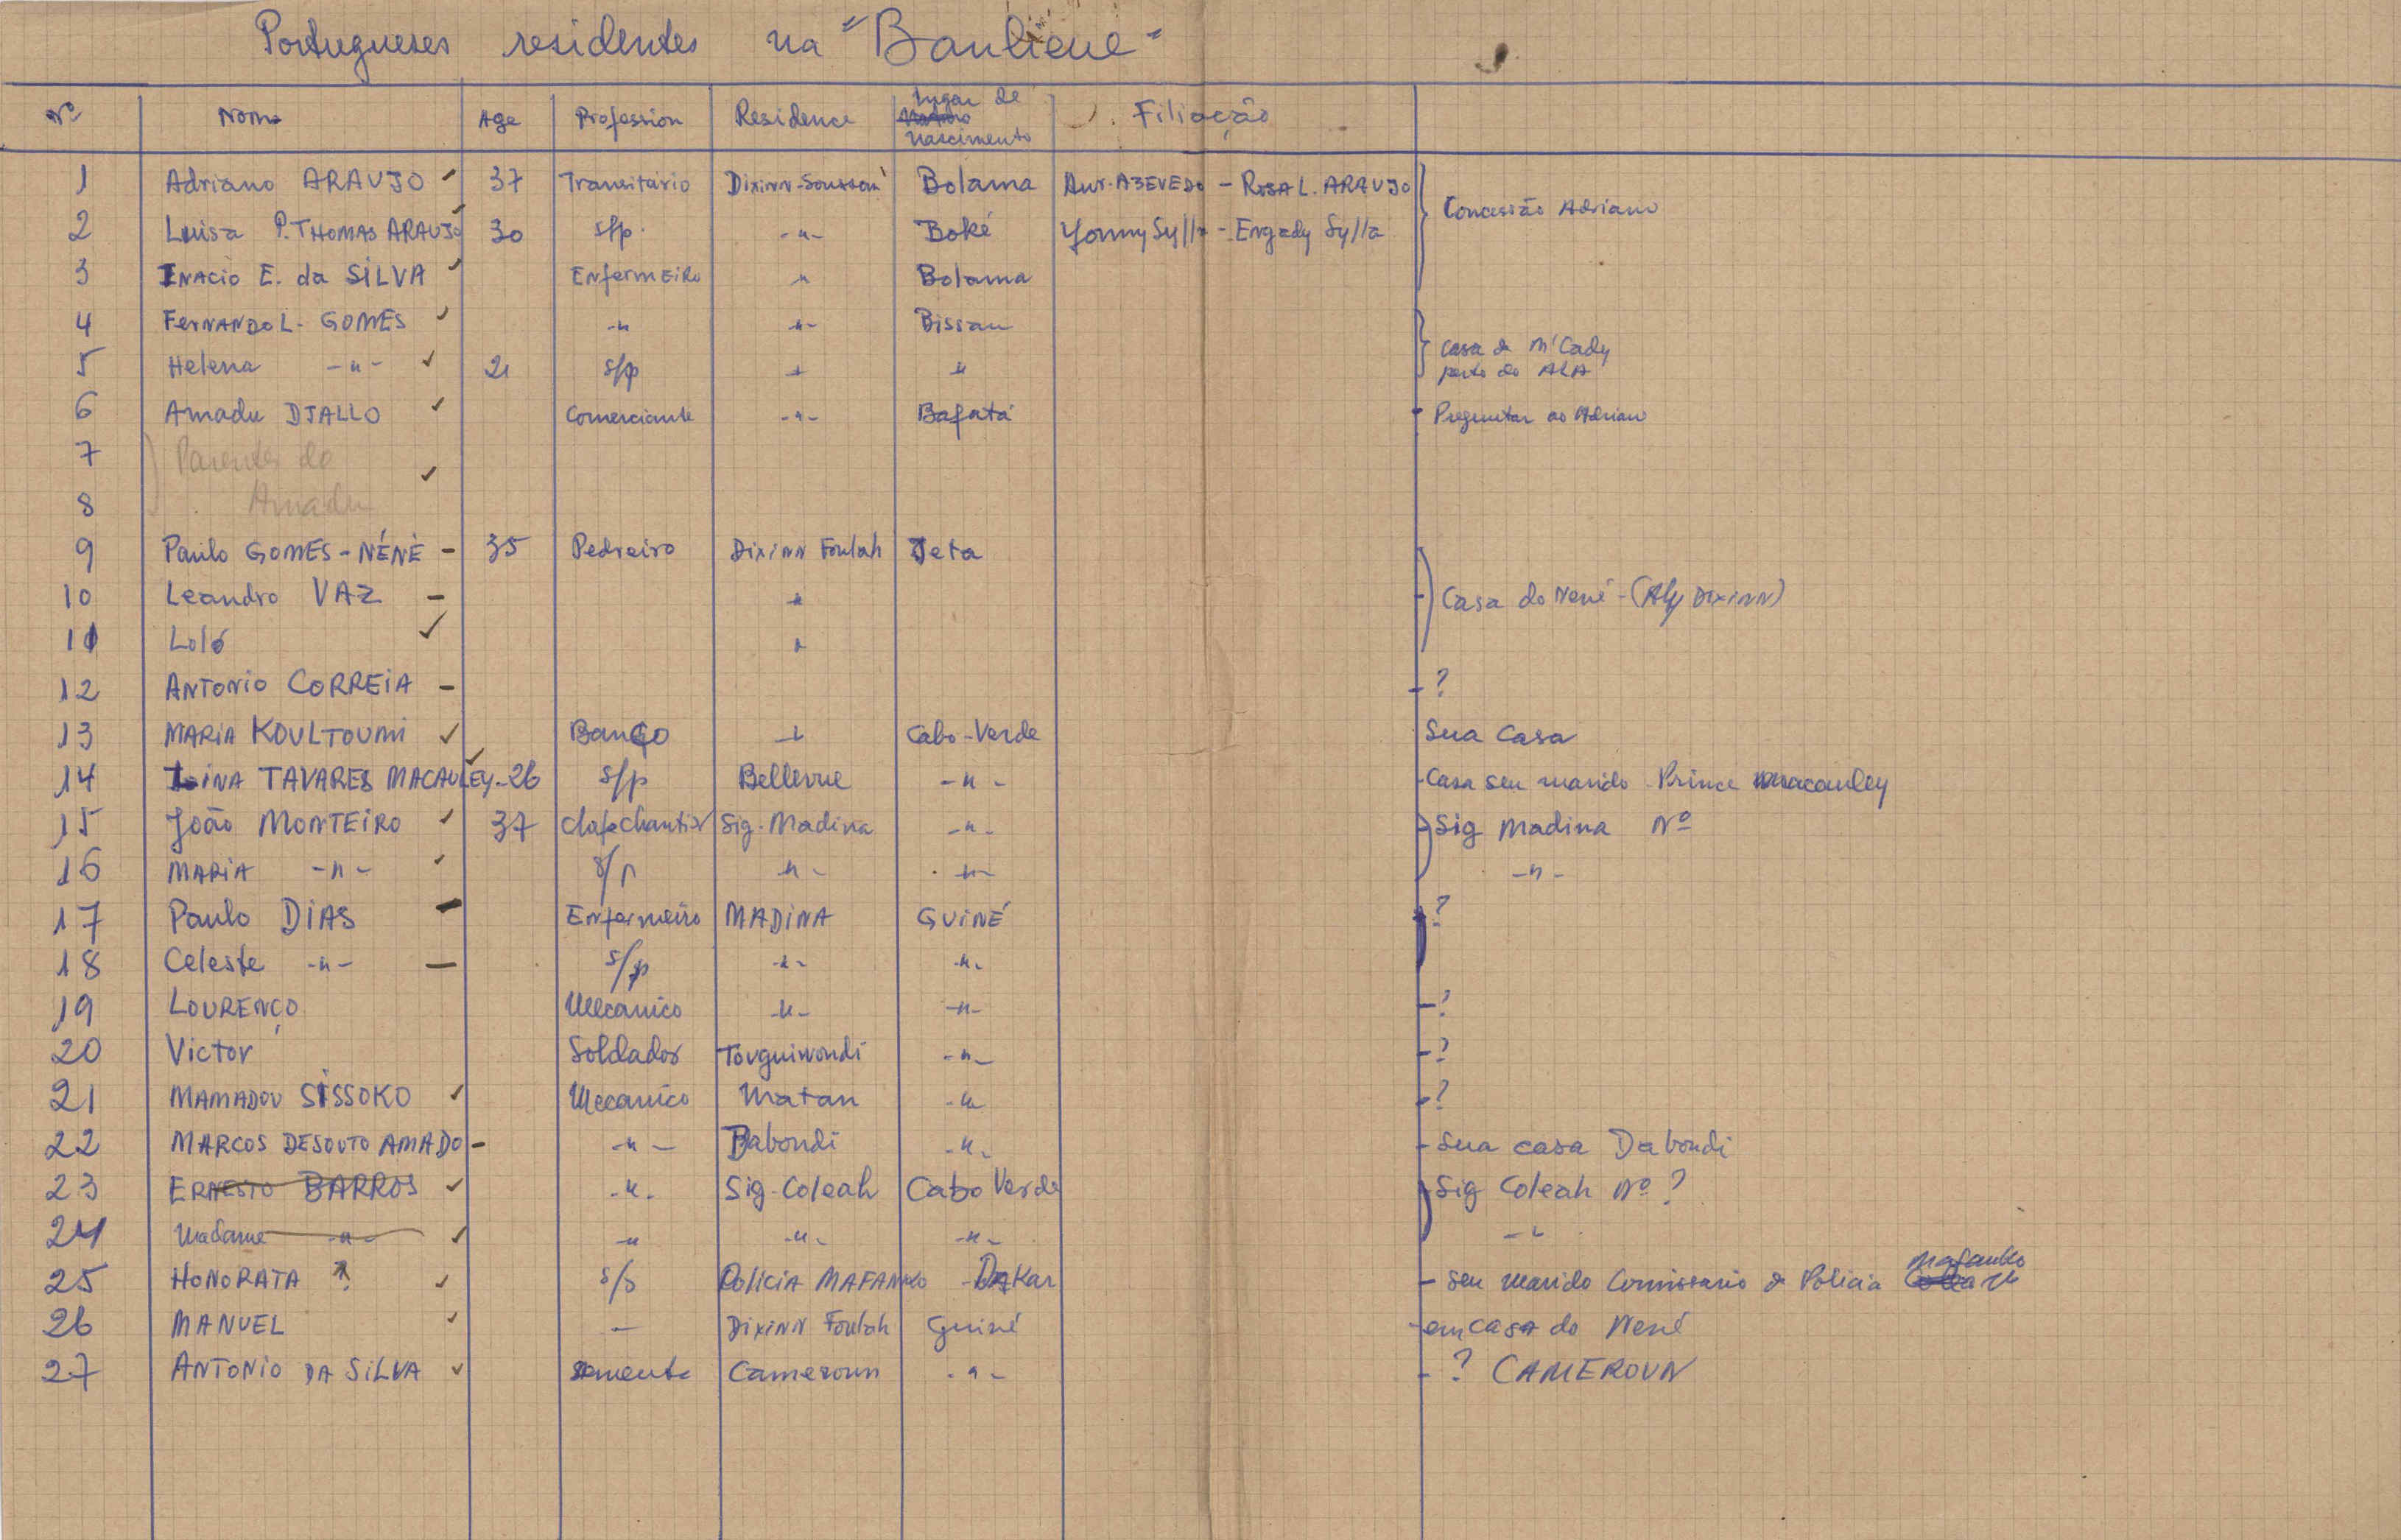 Portugueses residentes na "Banlieue"
Nº Nome Age Profession Residence lugar de nascimento Filiação
1 Adriano ARAUJO ✓ 37 Transitário Dixinn-Soussou Bolama Ant. AZEVEDO - ROSA L. ARAUJO
Concessão Adriano
2 Luisa P. THOMAS ARAUJO ✓ 30 s/p. -"- Boké Yommy Sylla - Engady Sylla
3 INACIO E. da SILVA ✓ Enfermeiro " Bolama
4 FERNANDO L. GOMES ✓ -" -"- Bissau
casa de M'Cady
perto do
5 Helena -"- ✓ 21 s/p " "
6 Amadu DJALLO ✓ Comerciante -"- Bafatá - Preguntar ao Adriano
7 Parentes do ✓
8 Amadu
9 Paulo GOMES - NÉNÉ - 35 Pedreiro Dixinn Foulah Jeta
10 Leandro VAZ - " Casa do Nené - (Aly DIXINN)
11 Loló ✓ "
12 ANTONIO CORREIA - - ?
13 MARIA KOULTOUMI ✓ Banco " Cabo-Verde Sua Casa
14 LINA TAVARES MACAULEY - 26 s/p Bellevue -"- - Casa seu marido Prince Macauley
15 João MONTEIRO ✓ 37 Chefe Chantier Sig. Madina -"- Sig Madina Nº
16 MARIA -"- ✓ s/p "- -"- -"-
17 Paulo DIAS - Enfermeiro MADINA GUINÉ ?
18 Celeste -"- - s/p -"- -"-
19 LOURENÇO Mecanico -"- -"- - ?
20 Victor Soldador Touguiwondi -"- - ?
21 MAMADOU SISSOKO ✓ Mecanico Matan -" - ?
22 MARCOS DESOUTO AMADO - -"- Dabondi -"- - Sua casa Dabondi
23 ERNESTO BARROS ✓ -"- Sig-Coleah Cabo Verde Sig Coleah Nº ?
24 Madame -"- ✓ -" -"- -"- -"
25 HONORATA ? ✓ s/p POLICIA MAFANKO - DAKAR - Seu marido Comissario de Policia Mafanko
26 MANUEL ✓ - DIXINN Foulah Guiné - em casa do Nené
27 ANTONIO DA SILVA ✓ Cameroun -"- - ? CAMEROUN